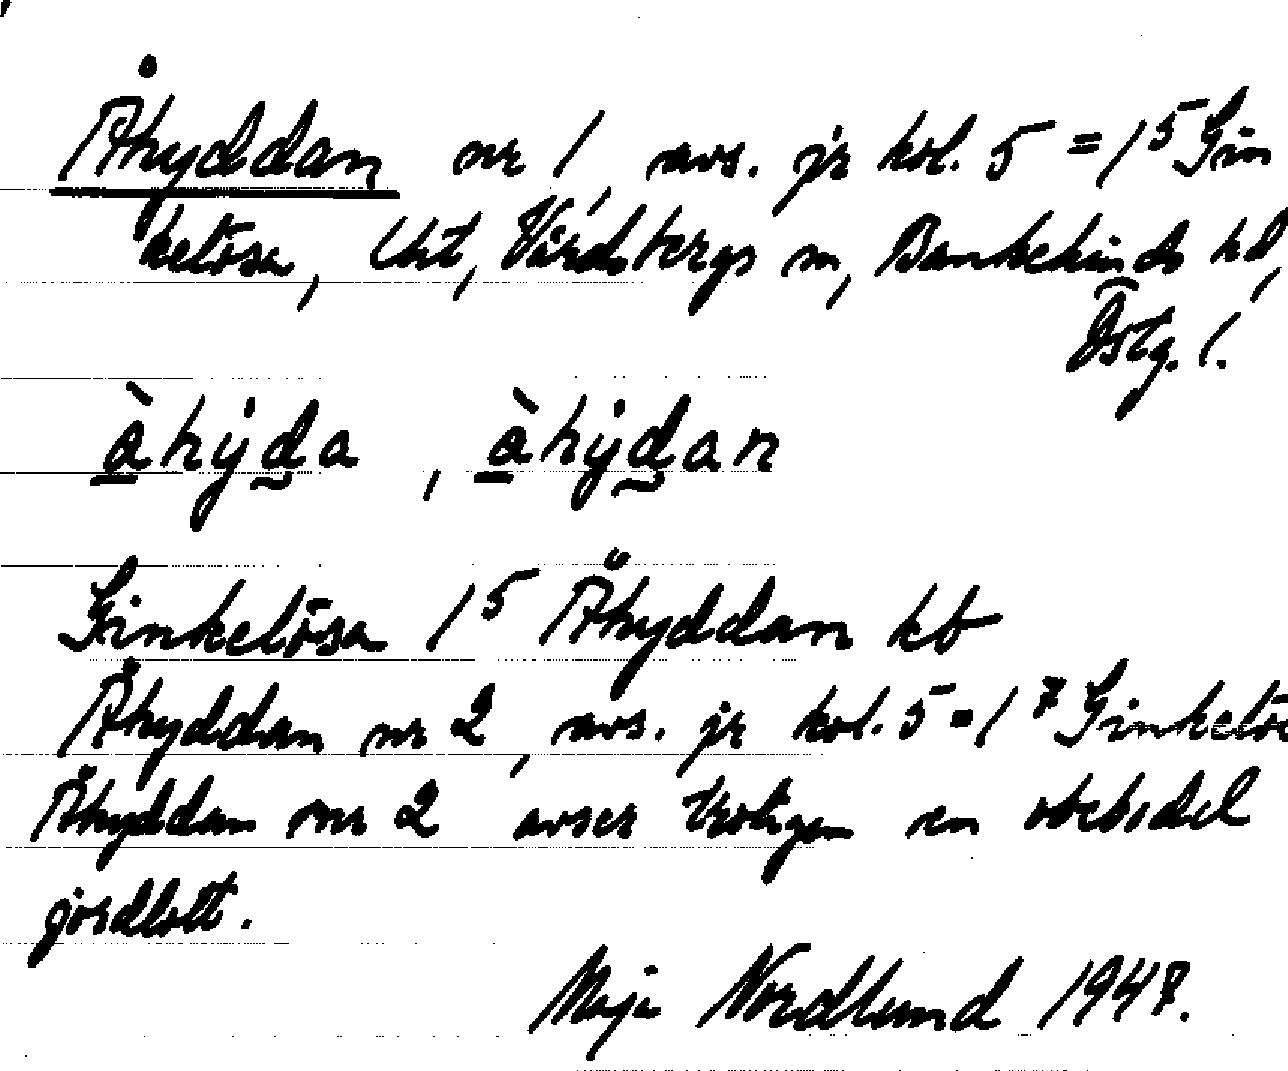 Åhyddan nr 1, avs. jr kol. 5 = 1⁵ Gin
kelösa, Urt, Vårdsbergs sn, Bankekinds hd,
Östg. l.
àhẏd̰a , àhẏd̰an
Ginkelösa 1⁵ Åhyddan kb
Åhyddan nr 2, avs. jr kol. 5 = 1⁷ Ginkelös
Åhyddan nr 2 avser troligen en obebodd
jordlott.
Maja Nordlund 1947.